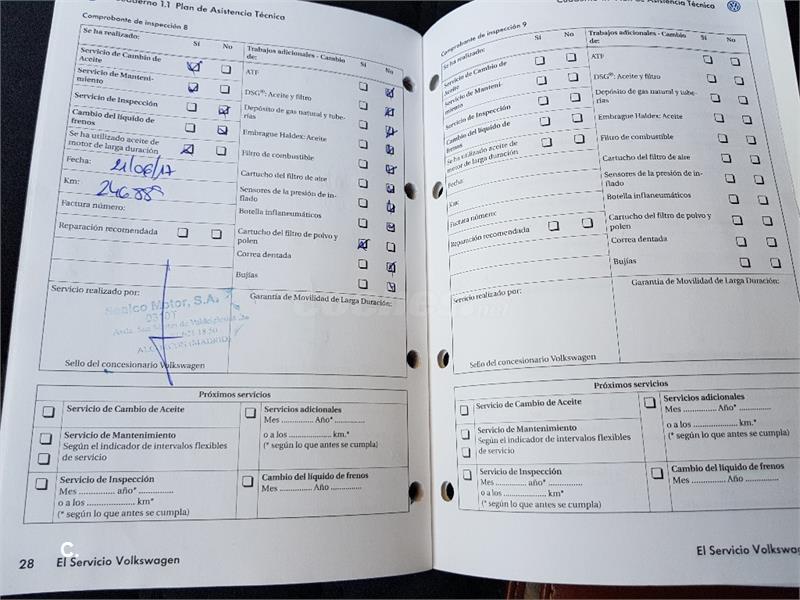 Cuaderno 1.1 Plan de Asistencia Técnica
Comprobante de inspección 8
Se ha realizado: Sí No
Servicio de Cambio de
Aceite
Servicio de Manteni-
miento
Servicio de Inspección
Cambio del líquido de
frenos
Se ha utilizado aceite de
motor de larga duración
Fecha: 21/06/17
Km: 246.889
Factura número:
Reparación recomendada
Trabajos adicionales - Cambio Sí No
de:
ATF
DSG®: Aceite y filtro
Depósito de gas natural y tube-
rías
Embrague Haldex: Aceite
Filtro de combustible
Cartucho del filtro de aire
Sensores de la presión de in-
flado
Botella inflaneumáticos
Cartucho del filtro de polvo y
polen
Correa dentada
Bujías
Servicio realizado por:
Motor, S.A.
0310T
(MADRID)
Sello del concesionario Volkswagen
Garantía de Movilidad de Larga Duración:
Próximos servicios
Servicio de Cambio de Aceite
Servicio de Mantenimiento
Según el indicador de intervalos flexibles
de servicio
Servicio de Inspección
Mes .............. año* ..............
o a los .............. km*
(* según lo que antes se cumpla)
Servicios adicionales
Mes .............. Año* ..............
o a los .............. km.*
(* según lo que antes se cumpla)
Cambio del líquido de frenos
Mes .............. Año ..............
28 El Servicio Volkswagen
C.
Plan de Asistencia Técnica
Comprobante de inspección 9
Se ha realizado: Sí No
Servicio de Cambio de
Aceite
Servicio de Manteni-
miento
Servicio de Inspección
Cambio del líquido de
frenos
Se ha utilizado aceite de
motor de larga duración
Fecha:
Km:
Factura número:
Reparación recomendada
Trabajos adicionales - Cambio Sí No
de:
ATF
DSG®: Aceite y filtro
Depósito de gas natural y tube-
rías
Embrague Haldex: Aceite
Filtro de combustible
Cartucho del filtro de aire
Sensores de la presión de in-
flado
Botella inflaneumáticos
Cartucho del filtro de polvo y
polen
Correa dentada
Bujías
Servicio realizado por:
Sello del concesionario Volkswagen
Garantía de Movilidad de Larga Duración:
Próximos servicios
Servicio de Cambio de Aceite
Servicio de Mantenimiento
Según el indicador de intervalos flexibles
de servicio
Servicio de Inspección
Mes .............. año* ..............
o a los .............. km*
(* según lo que antes se cumpla)
Servicios adicionales
Mes .............. Año* ..............
o a los .............. km.*
(* según lo que antes se cumpla)
Cambio del líquido de frenos
Mes .............. Año ..............
El Servicio Volkswagen